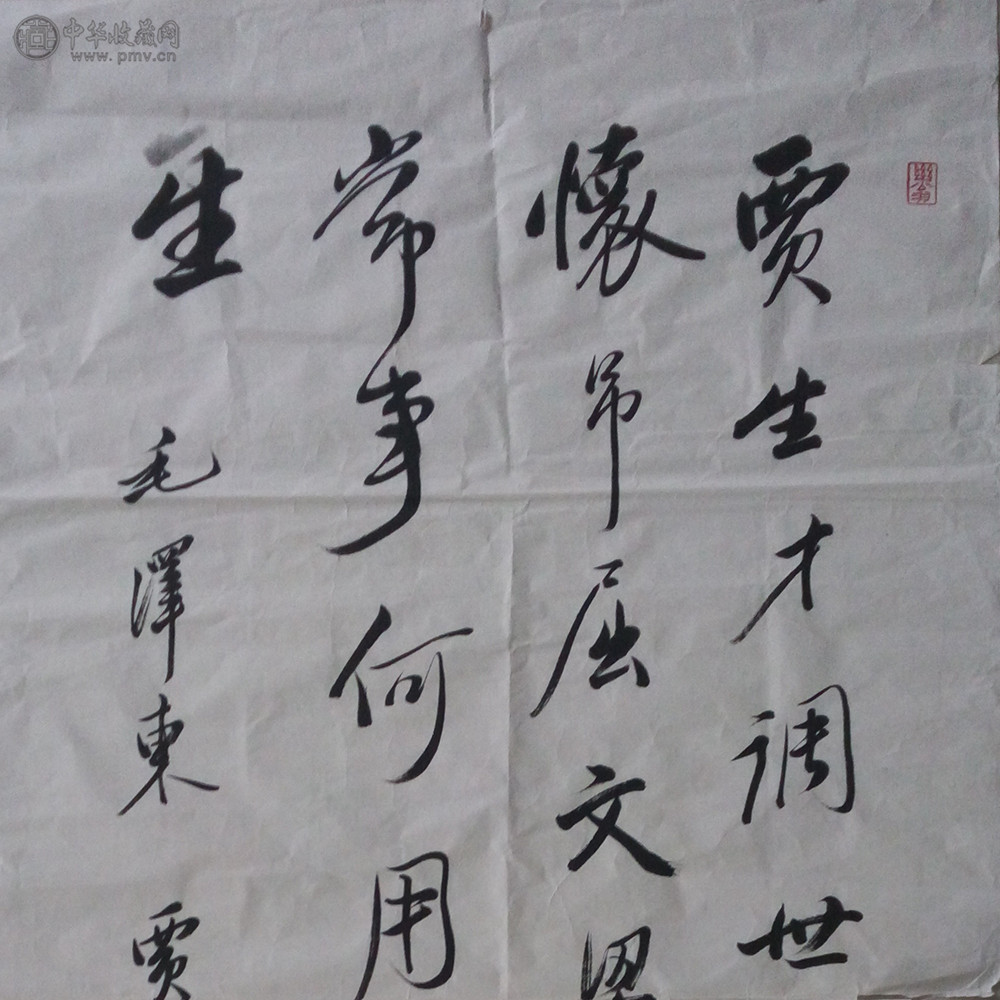 中华收藏网
www.pmv.cn
贾生才调世
懷吊屈文
常事何用
生 毛澤東 贾